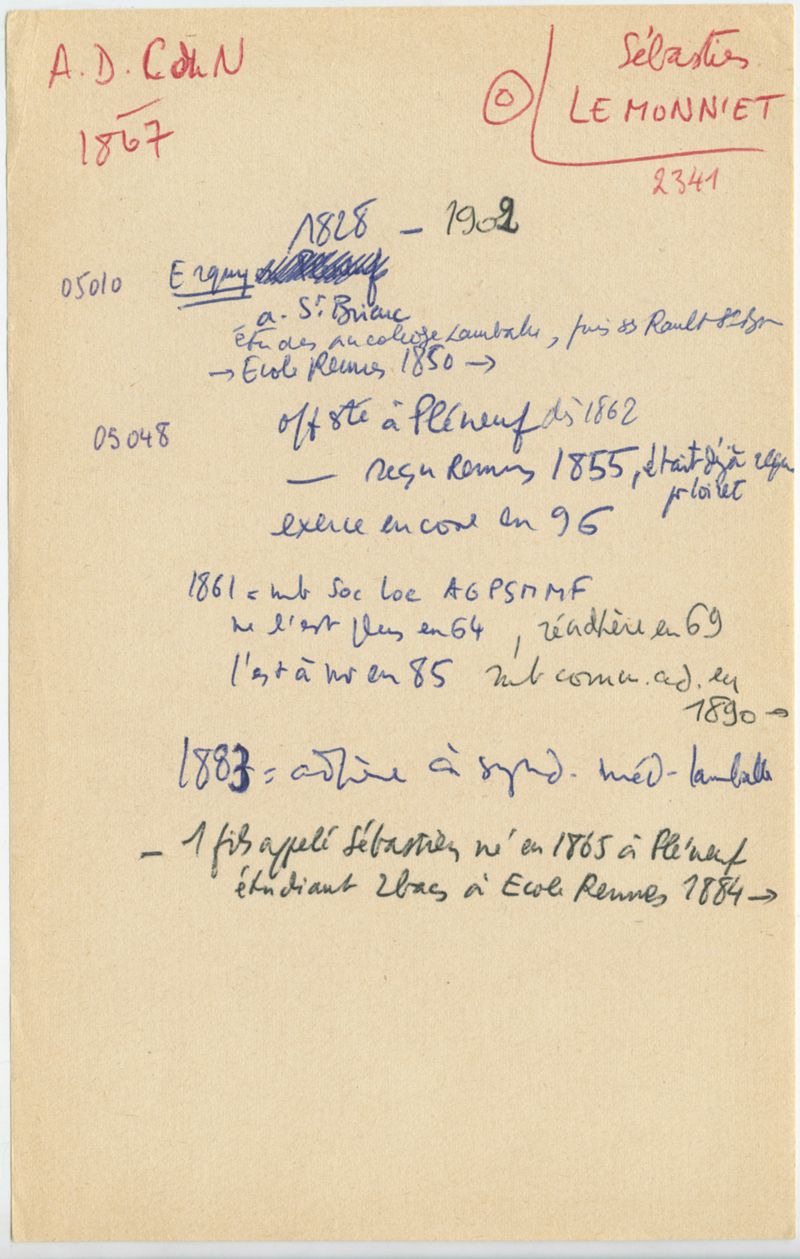 A. D. CdN
1867
Sébastien
LE MONNIET
O
2341
1828 - 1902
05010 Erquy
a. St Brieuc
études au collège Lamballe, puis Rault St
→ Ecole Rennes 1850 →
05048 off sté à Pléneuf dès 1862
— reçu Rennes 1855, était déjà reçu
exerce encore en 96
1861 = mb Soc Loc AGPSMMF
ne l'est plus en 64, réadhère en 69
l'est à nv en 85 mb comm. ad. en
1890 →
1883 = adhère à synd. méd - Lamballe
— 1 fils appelé Sébastien né en 1865 à Pléneuf
étudiant 2 bacs à Ecole Rennes 1884 →